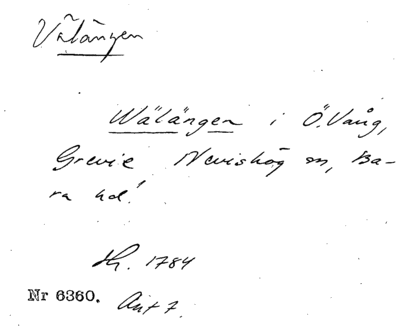 Välängen
Wälängen i Ö. Vång,
Grevie Nevishög sn, Ba-
ra hd.
1784
Nr 6360.